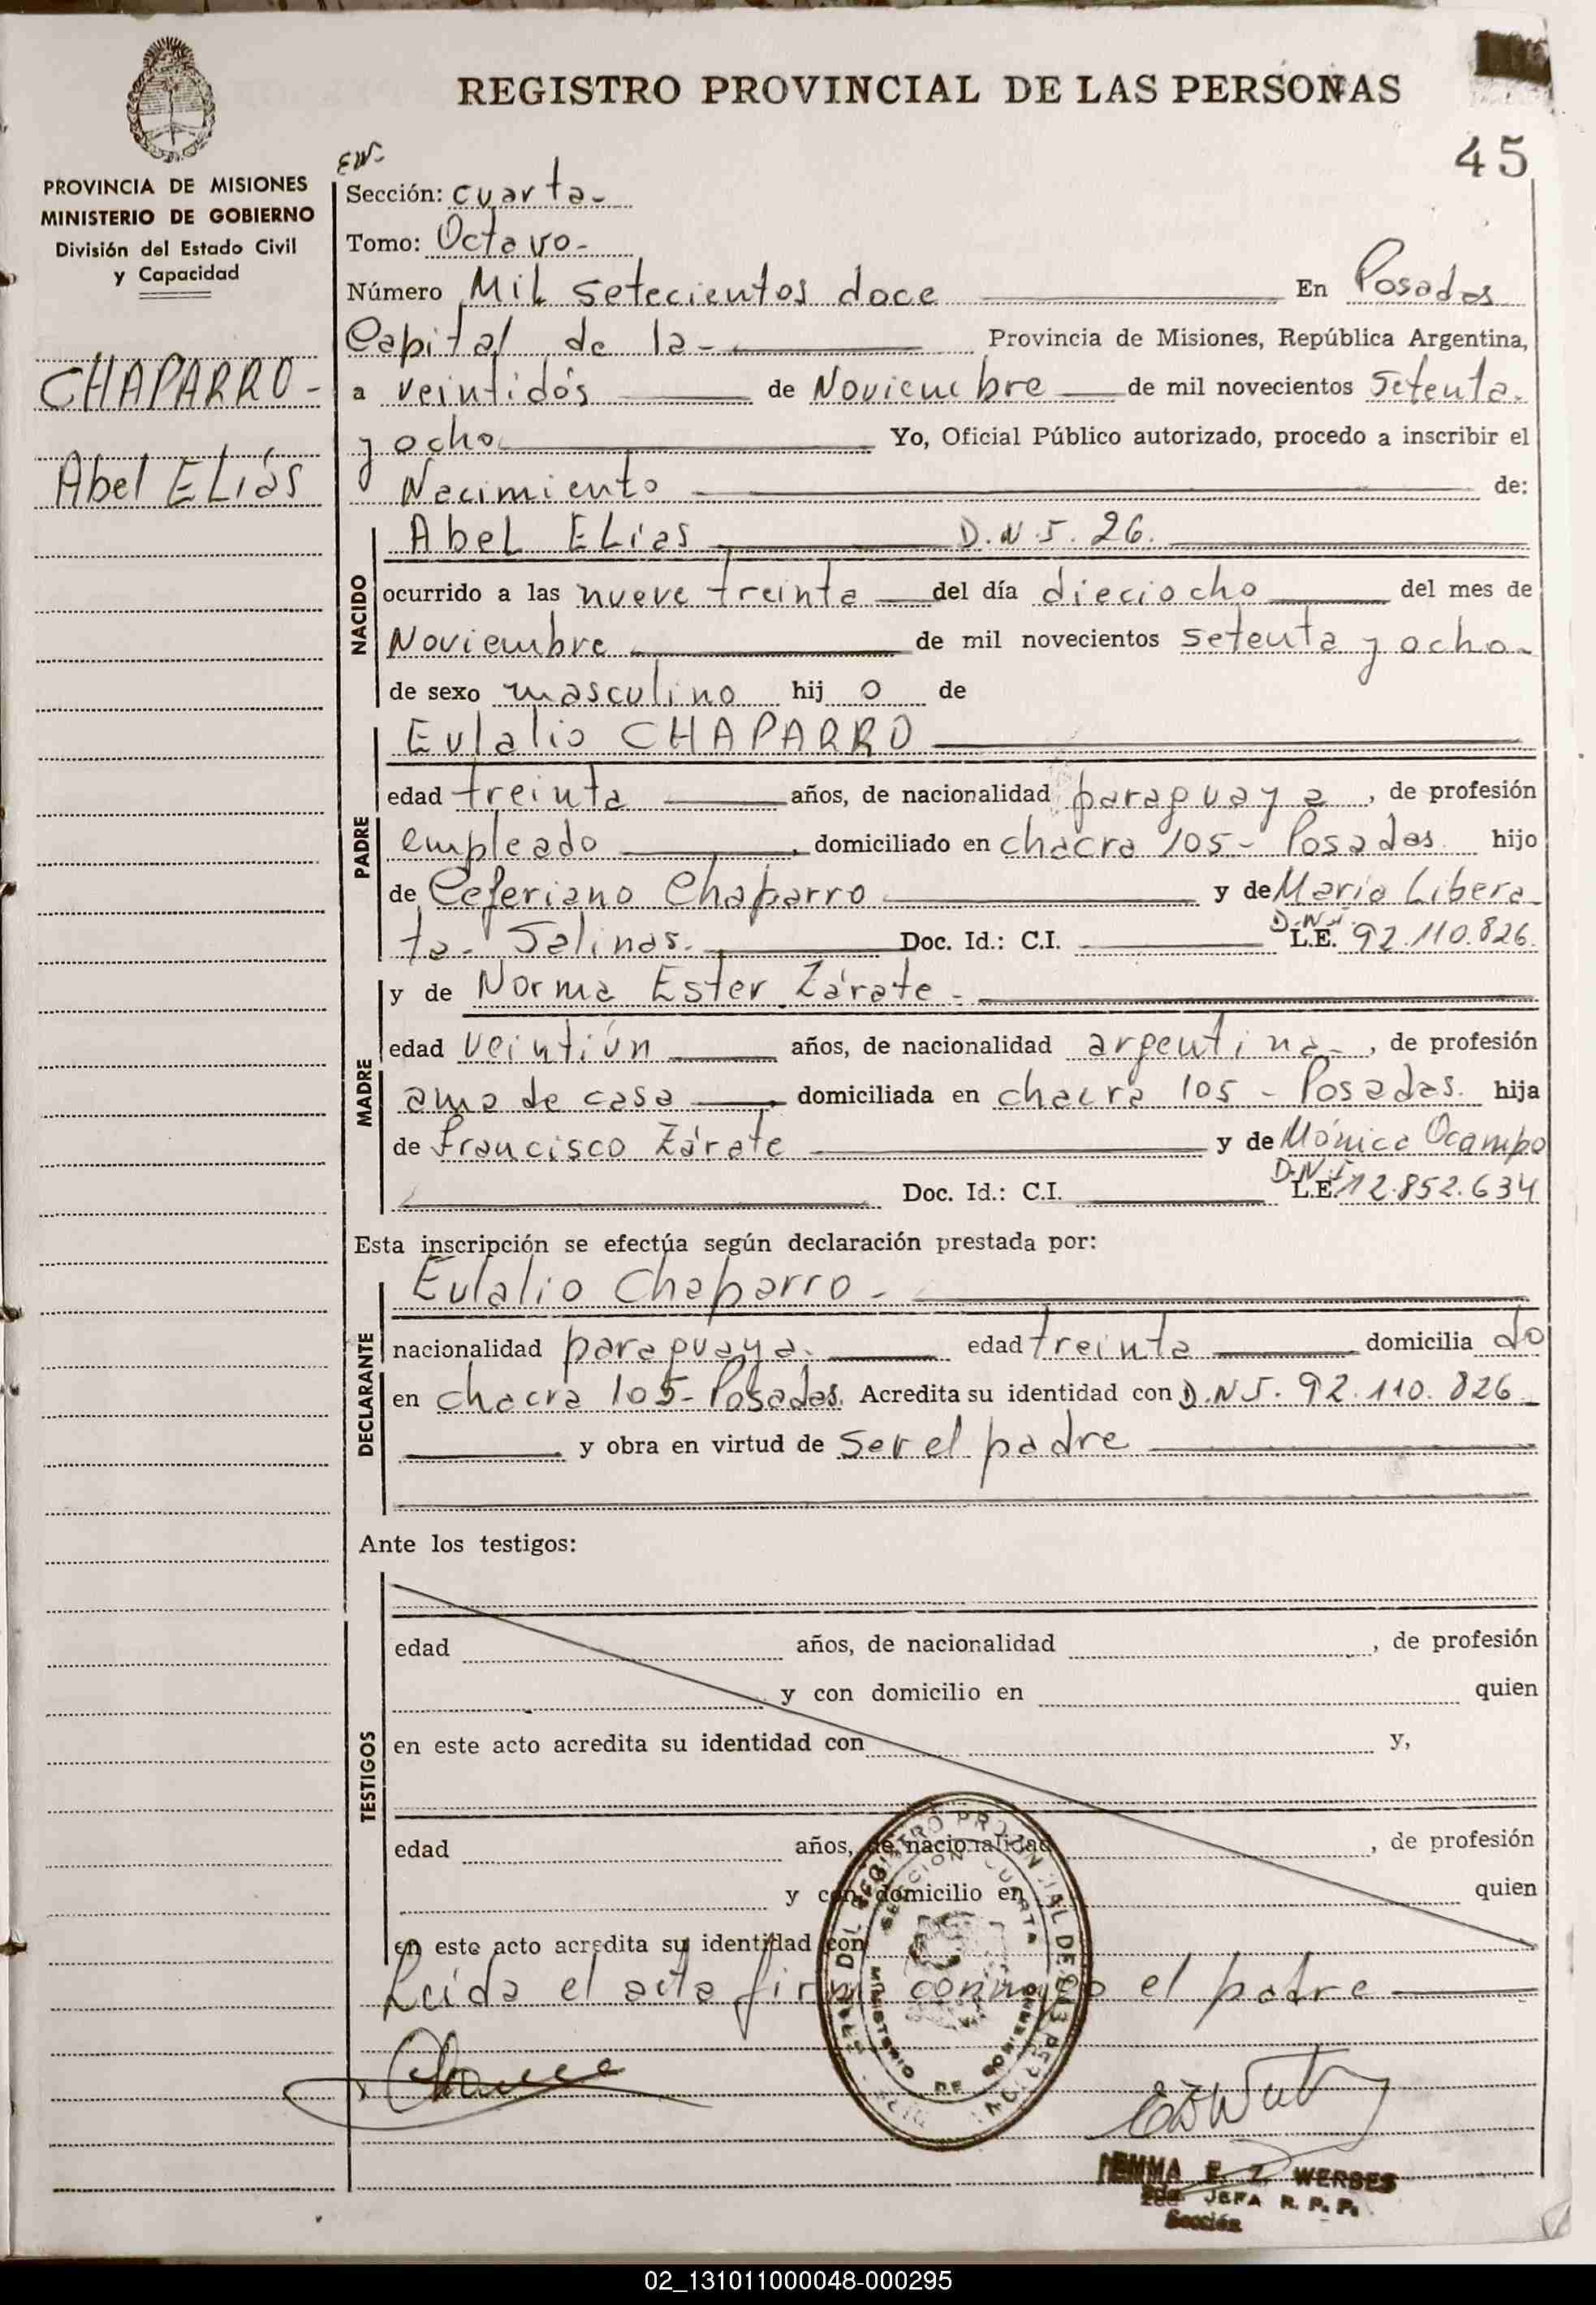 REGISTRO PROVINCIAL DE LAS PERSONAS
45
PROVINCIA DE MISIONES
MINISTERIO DE GOBIERNO
División del Estado Civil
y Capacidad
CHAPARRO-
Abel ELías
EW-
Sección: cuarta-
Tomo: Octavo-
Número Mil setecientos doce En Posadas
Capital de la- Provincia de Misiones, República Argentina,
a veintidós de Noviembre de mil novecientos setenta
y ocho Yo, Oficial Público autorizado, procedo a inscribir el
Nacimiento de:
NACIDO
Abel ELías D.N.I. 26.
ocurrido a las nueve treinta del día dieciocho del mes de
Noviembre de mil novecientos setenta y ocho-
de sexo masculino hij o de
PADRE
Eulalio CHAPARRO
edad treinta años, de nacionalidad paraguaya, de profesión
empleado, domiciliado en chacra 105- Posadas. hijo
de Ceferiano Chaparro y de María Libera
ta- Salinas. Doc. Id.: C.I. D.N.I. L.E. 92.110.826
MADRE
y de Norma Ester Zárate-
edad veintiún años, de nacionalidad argentina-, de profesión
ama de casa, domiciliada en chacra 105 - Posadas. hija
de Francisco Zárate y de Mónica Ocampo
Doc. Id.: C.I. D.N.I. L.E. 12.852.634
Esta inscripción se efectúa según declaración prestada por:
DECLARANTE
Eulalio Chaparro-
nacionalidad paraguaya. edad treinta domicilia do
en chacra 105- Posadas. Acredita su identidad con D.N.I. 92.110.826
y obra en virtud de ser el padre
Ante los testigos:
TESTIGOS
edad años, de nacionalidad , de profesión
y con domicilio en quien
en este acto acredita su identidad con y,
edad años, de nacionalidad , de profesión
y con domicilio en quien
en este acto acredita su identidad con
Leída el acta firma conmigo el padre
SECCION CUARTA
MINISTERIO DE GOBIERNO
E. Z. WERBES
JEFA R. P. P.
Sección
02_131011000048-000295